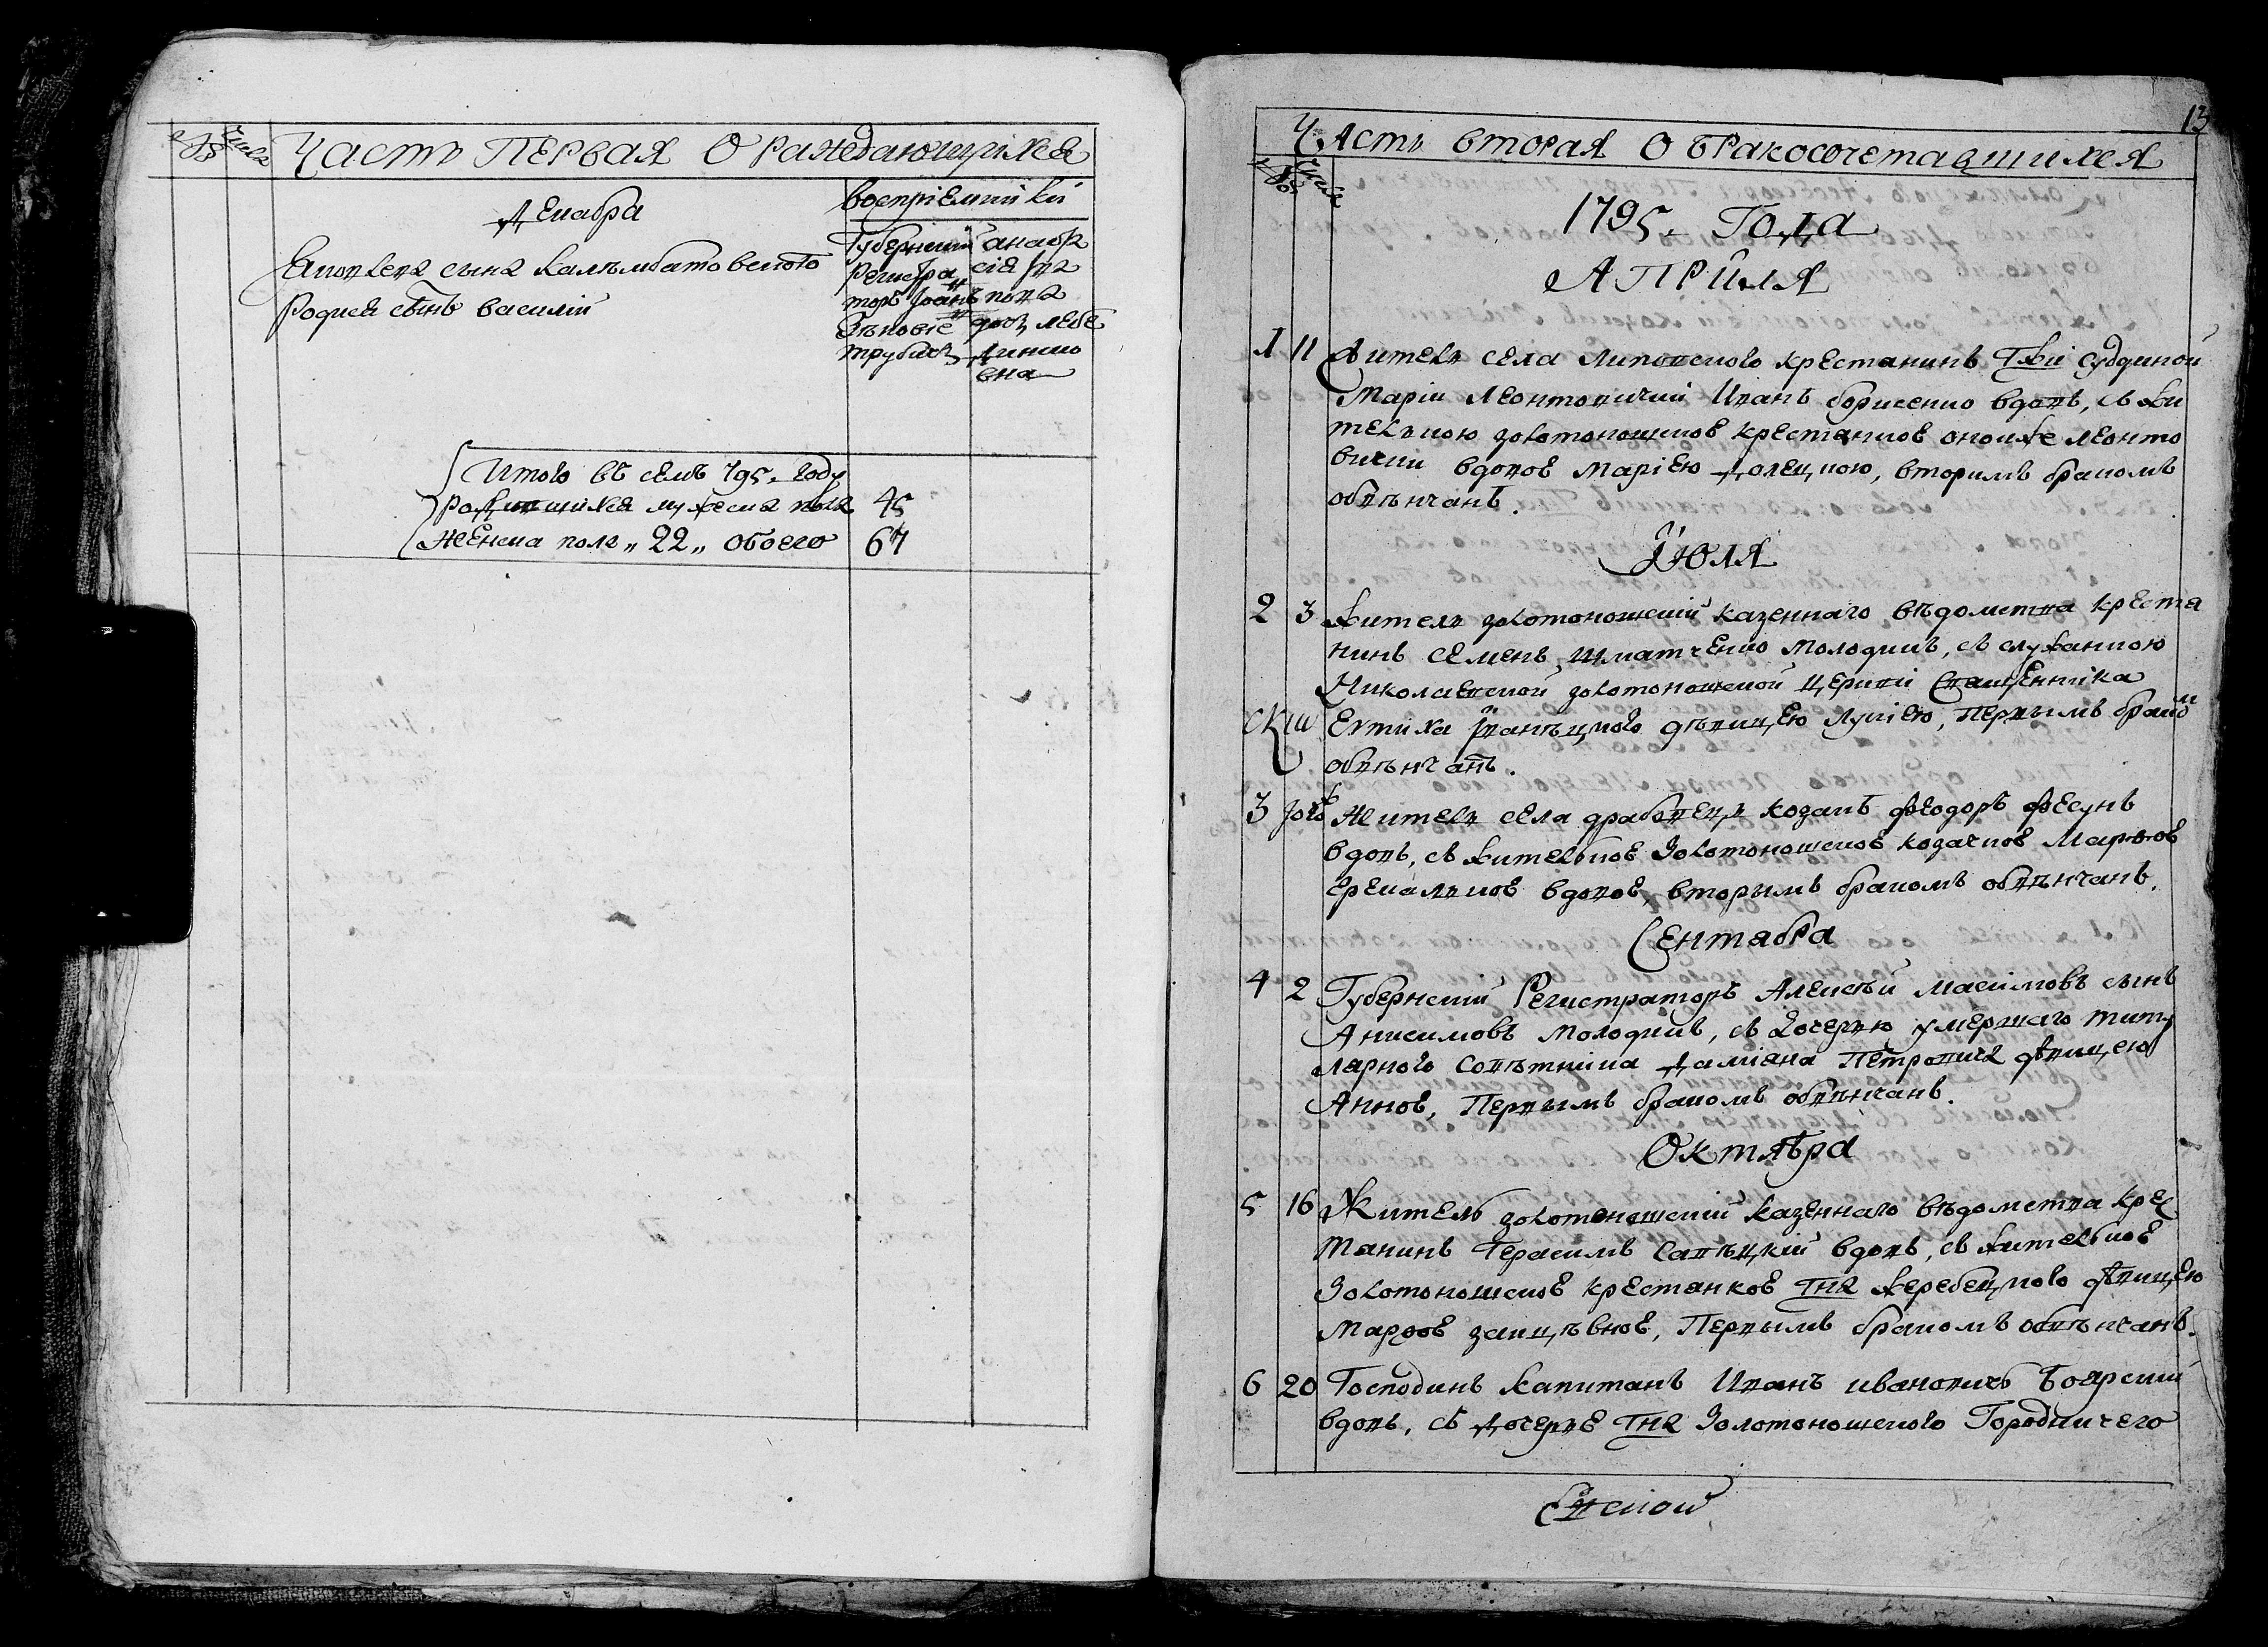 № Числа Часть Первая О раждающихся
Декабря
воспріемники
Яковлева сына Калъмбатовского
Родися сынъ василій
Губернский
Регистра
торъ Іоанъ
трубичъ
Итого въ семъ 795. году
Родившихся мужеска пола 45
Женска пола „ 22 „ обоего 67
13
Часть вторая О Бракосочетавшихся
№ Числа
1795. Года
Априля
1 11 Житель села липовского крестянинъ Гжи судциной
Маріи Леонтовичии Иванъ борисенко вдовъ, съ жи
телъкою золотоношског крестянког оной же леонто
вички вдовою Маріею Донецкою, вторимъ бракомъ
обвѣнчанъ.
Июля
2 3 Житель золотоношский казенного вѣдомства крестя
нинъ Семенъ Шматченко молодикъ, съ служанкою
Николаевской золотоношской церкви Священника
Евтиха Іваницкого дѣвицею Лукіею, Первымъ бракомъ
обвѣнчанъ.
3 Житель села драбовецъ козакъ Феодоръ Фесунъ
вдовъ, съ жителькоє Золотоношскоє козачкоє Марѳоє
вдовоє, вторымъ бракомъ обвѣнчанъ.
Сентября
4 2 Губернский Регистраторъ Алексѣй Масимовъ сынъ
Анисимовъ молодикъ, съ дочерью умершаго титу
лярного Совѣтника Даміяна Петровича дѣвицею
Анноє, Первымъ бракомъ обвѣнчанъ.
Октября
5 16 Житель золотоношский казенного вѣдомства крес
тянинъ Герасимъ Савѣцкій вдовъ, съ жителькоє
Золотоношскоє крестянкоє Гна Жеребецкого дѣвицею
Марѳоє заицѣвноє, Первымъ бракомъ обвѣнчанъ.
6 20 Господинъ Капитанъ Иванъ ивановичъ Боярский
вдовъ, съ Дочерє Гна Золотоношского Городничего